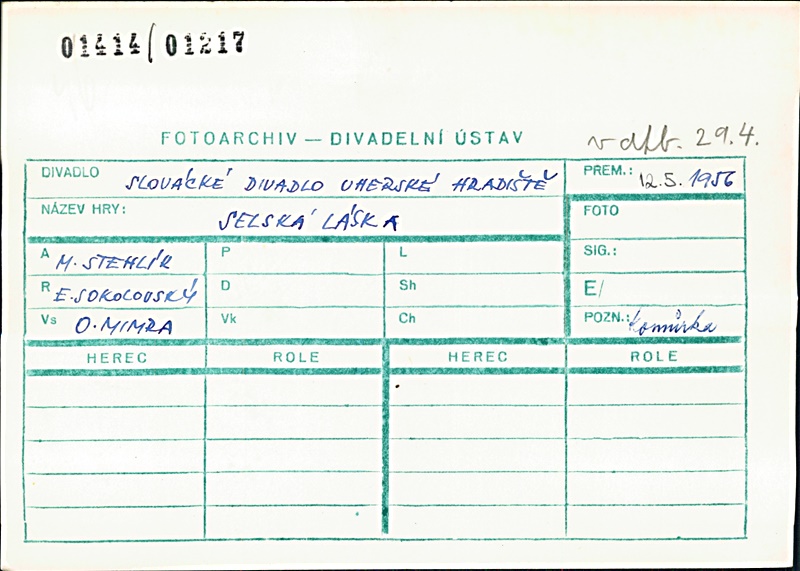 01414/01217
FOTOARCHIV — DIVADELNÍ ÚSTAV
29.4.
DIVADLO SLOVÁCKÉ DIVADLO UHERSKÉ HRADIŠTĚ PREM.: 12.5.1956
NÁZEV HRY: SELSKÁ LÁSKA FOTO
A M. STEHLÍK P L SIG.:
R E. SOKOLOVSKÝ D Sh E/
Vs O. MIMRA Vk Ch POZN.: Komůrka
HEREC ROLE HEREC ROLE